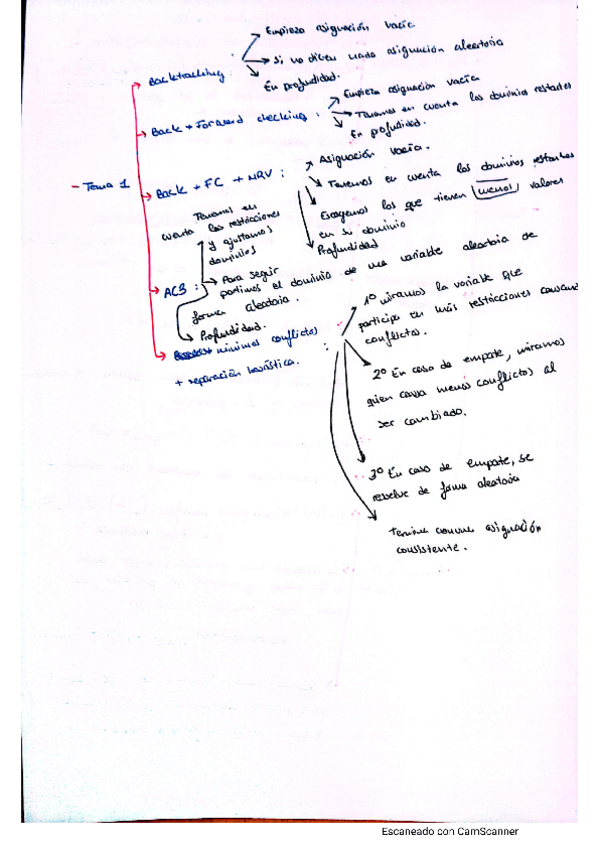 - Tema 1
Backtracking:
Empieza asignación vacía
Si no dicen nada asignación aleatoria
En profundidad.
Back + Forward checking :
Empieza asignación vacía
Tenemos en cuenta los dominios restantes
En profundidad.
Back + FC + MRV :
Asignación vacía.
Tenemos en cuenta los dominios restantes
Escogemos los que tienen menos valores
en su dominio
Profundidad
AC3 :
Tenemos en
cuenta las restricciones
y ajustamos
dominios
Para seguir
partimos el dominio de una variable aleatoria de
forma aleatoria.
Profundidad.
minimos conflictos
+ reparación heurística. :
1º miramos la variable que
participe en más restricciones causando
conflictos.
2º En caso de empate, miramos
quien causa menos conflictos al
ser cambiado.
3º En caso de empate, se
resuelve de forma aleatoria
Termina con una asignación
consistente.
Escaneado con CamScanner